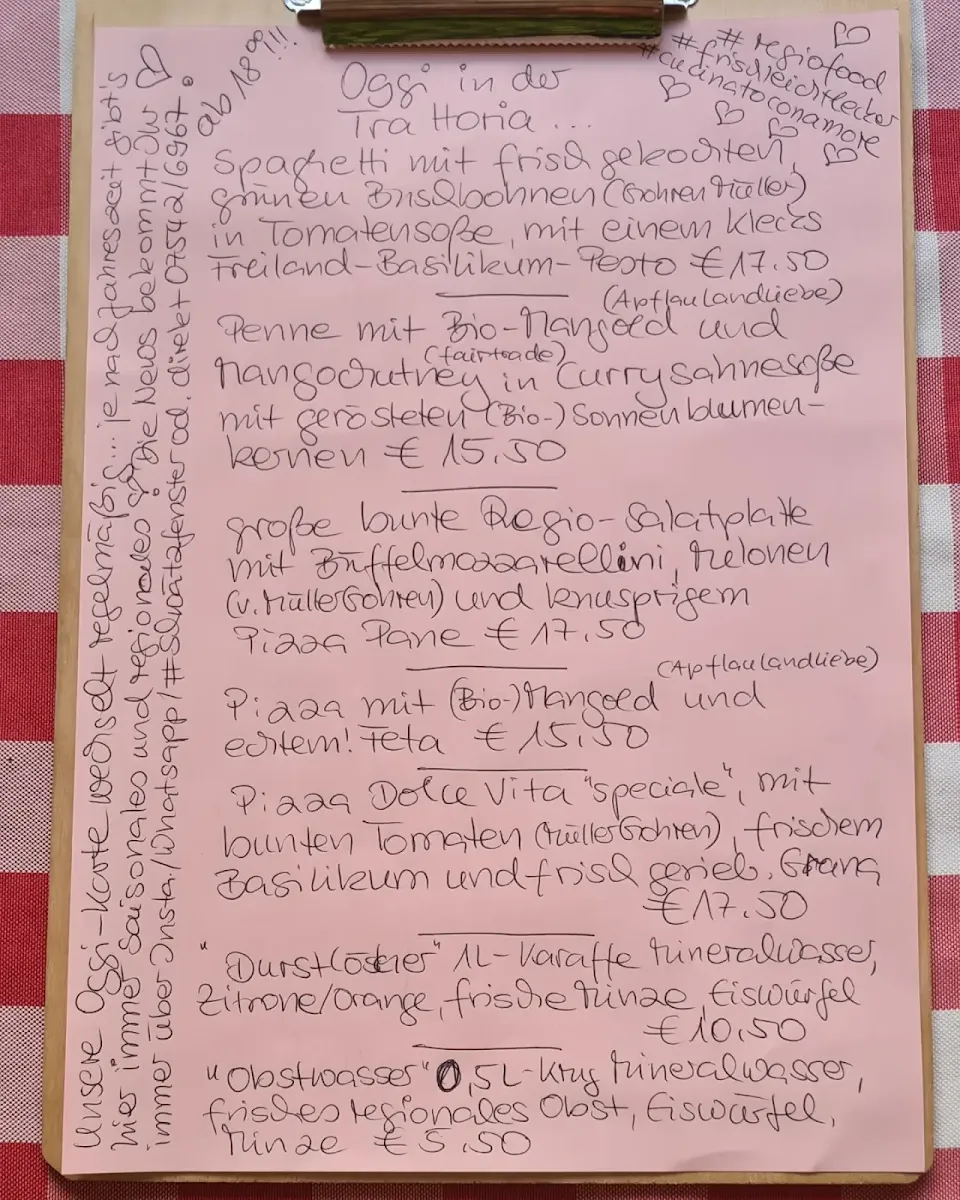 ab 18°°!!!
Oggi in der
Trattoria...
# regiofood
#frischleichtlecker
#cucinatoconamore
Spaghetti mit frisch gekochten,
grünen Buschbohnen (Gohren Müller)
in Tomatensoße, mit einem Klecks
Freiland-Basilikum-Pesto €17.50
(Apflaulandliebe)
Penne mit Bio-Mangold und
(fairtrade)
Mangochutney in Currysahnesoße
mit gerösteten (Bio-) Sonnenblumen-
kernen € 15.50
große bunte Regio-Salatplatte
mit Büffelmozzarellini, Melonen
(v. Müller Gohren) und knusprigem
Pizza Pane € 17.50
(Apflaulandliebe)
Pizza mit (Bio-) Mangold und
echtem! Feta € 15.50
Pizza Dolce Vita "speciale", mit
bunten Tomaten (Müller Gohren), frischem
Basilikum und frisch gerieb. Grana
€17.50
"Durstlöscher" 1L-Karaffe Mineralwasser,
Zitrone/Orange, frische Minze, Eiswürfel
€10.50
"Obstwasser" 0,5L-Krug Mineralwasser,
frisches regionales Obst, Eiswürfel,
Minze €5.50
Unsere Oggi-Karte wechselt regelmäßig... je nach Jahreszeit gibt's
hier immer Saisonales und regionales Die News bekommt Ihr
immer über Insta/Whatsapp/#Schwätzfenster od. direkt 07542/6967.